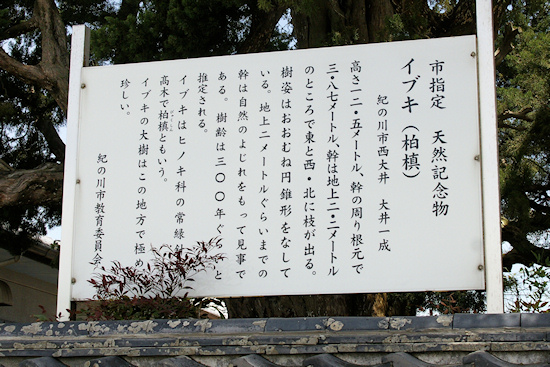 市指定　天然記念物
イブキ（柏槙）
紀の川市西大井　大井一成
高さ一二・五メートル、幹の周り根元で
三・八七メートル、幹は地上二・二メートル
のところで東と西・北に枝が出る。
樹姿はおおむね円錐形をなして
いる。地上二メートルぐらいまでの
幹は自然のよじれをもって見事で
ある。樹齢は三〇〇年ぐ と
推定される。
イブキはヒノキ科の常緑
高木で柏槙ともいう。
イブキの大樹はこの地方で極め
珍しい。
紀の川市教育委員会